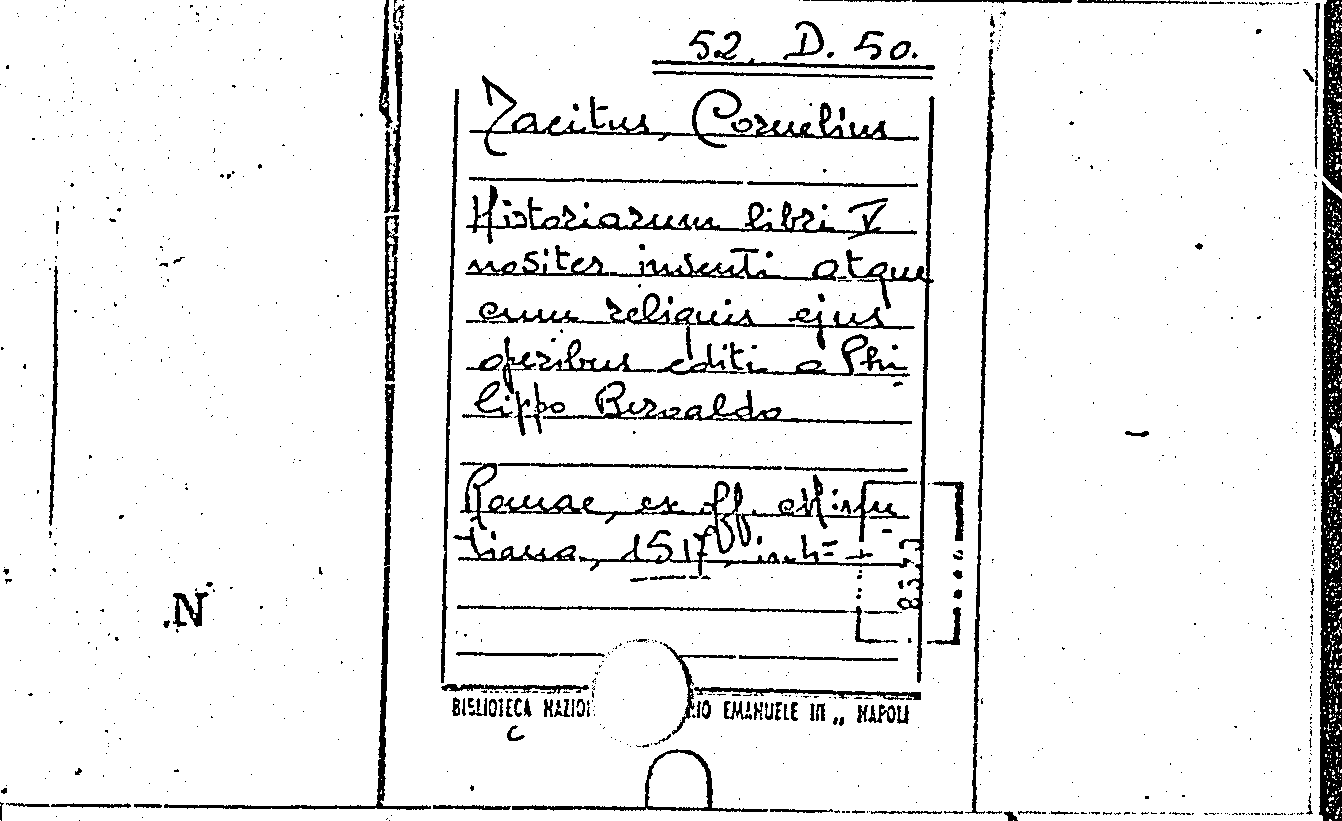 52. D. 50.
Tacitus, Cornelius
Historiarum libri V
nositer inventi atque
cum reliquis ejus
operibus editi a Phi
lippo Beroaldo
Romae, ex off. Minu
tiana, 1517, in 4=
N
BIBLIOTECA NAZIO RIO EMANUELE III „ NAPOLI